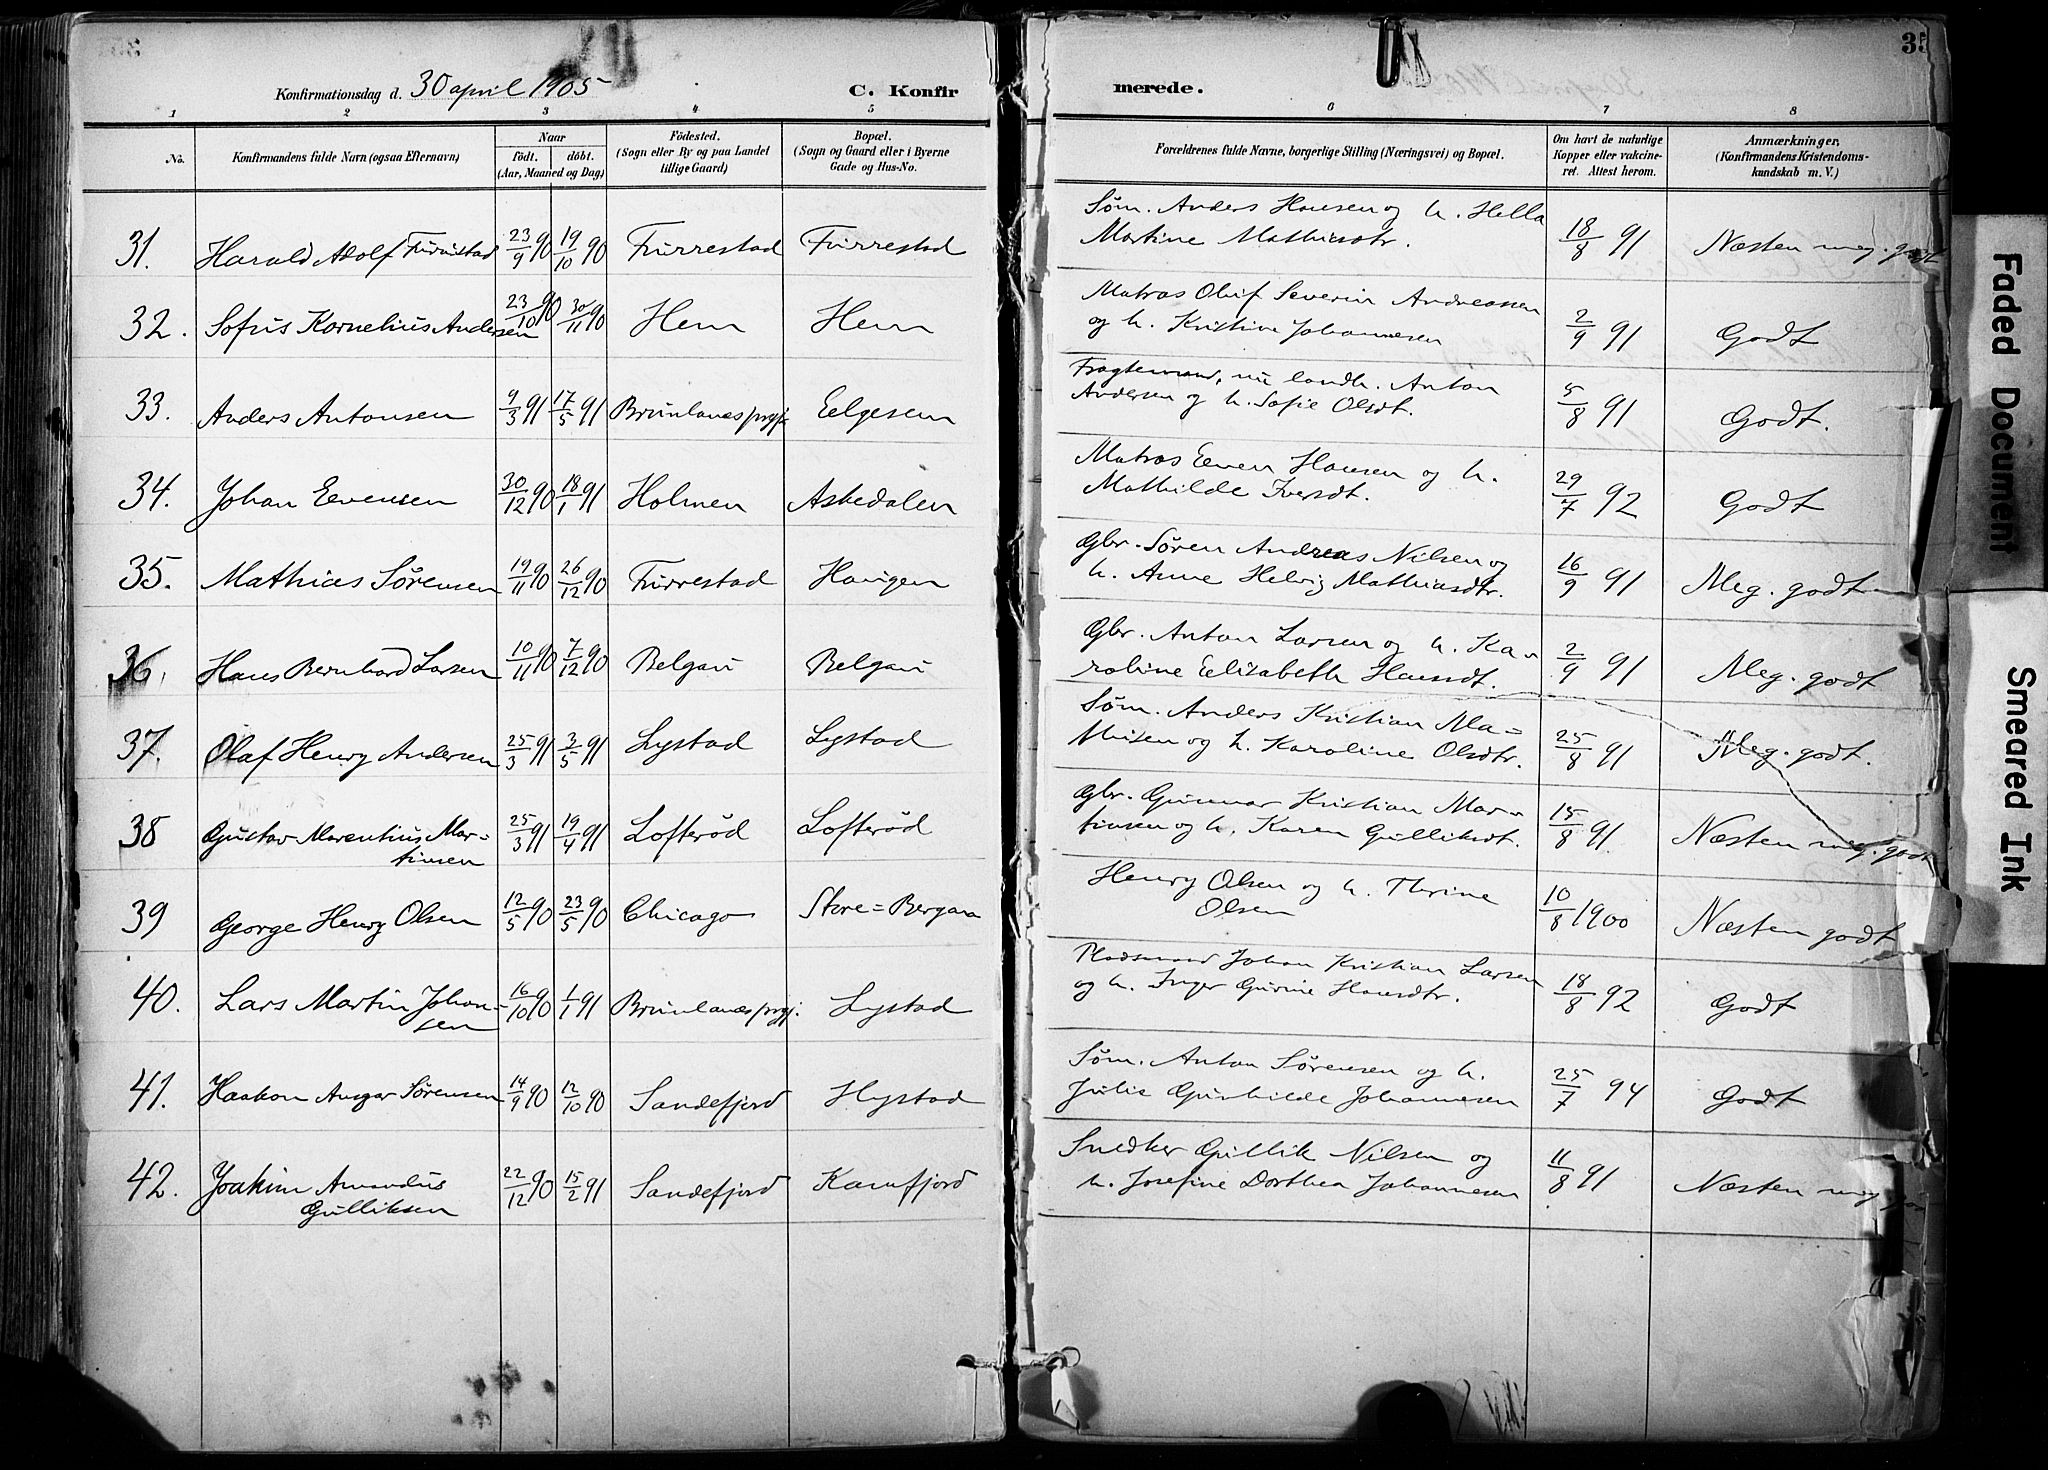 Konfirmationsdag d. 30 april 1905
C. Konfirmerede.
1 2 3 4 5 6 7 8
No. Konfirmandens fulde Navn (ogsaa Efternavn) Naar født. døbt. (Aar, Maaned og Dag) Fødested. (Sogn eller By og paa Landet tillige Gaard) Bopæl. (Sogn og Gaard eller i Byerne Gade og Hus-No. Forældrenes fulde Navne, borgerlige Stilling (Næringsvei) og Bopæl. Om havt de naturlige Kopper eller vakcineret. Attest herom. Anmærkninger, (Konfirmandens Kristendomskundskab m. V.)
31. Harald Adolf Furustad 23/9 90 19/10 90 Furrestad Furrestad Søm. Anders Hansen og h. Hella
Martine Mathiasdtr. 18/8 91 Næsten meg. godt
32. Sofus Kornelius Andersen 23/10 90 30/11 90 Hem Hem Matros Oluf Severin Andreassen
og h. Kristine Johannesen 2/9 91 Godt
33. Anders Antonsen 9/3 91 17/5 91 Brunlanæs prgj. Eelgesem Fragtemand, nu landh. Anton
Andersen og h. Sofie Olsdt. 5/8 91 Godt.
34. Johan Evensen 30/12 90 18/1 91 Holmen Askedalen Matros Even Hansen og h.
Mathilde Iversdt. 29/7 92 Godt
35. Mathias Sørensen 19/11 90 26/12 90 Furrestad Haugen Gbr. Søren Andreas Nilsen og
h. Anne Helvig Mathiasdtr. 16/9 91 Meg. godt
36. Hans Bernhard Larsen 10/11 90 7/12 90 Belgau Belgau Gbr. Anton Larsen og h. Ka-
roline Elizabeth Hansdt. 2/9 91 Meg. godt
37. Olaf Henry Andersen 25/3 91 3/5 91 Lystad Lystad Søm. Anders Kristian Ma=
thisen og h. Karoline Olsdtr. 25/8 91 Meg. godt.
38 Gustav Marentius Mar=
tinsen 25/3 91 19/4 91 Lofterød Lofterød Gbr. Gunnar Kristian Mar-
tinsen og h. Karen Gulliksdt. 15/8 91. Næsten meg. godt
39 George Henry Olsen 12/5 90 23/5 90 Chicago Store=Bergan Henry Olsen og h. Thrine
Olsen 10/8 1900 Næsten godt
40. Lars Martin Johan=
sen 16/10 90 1/1 91 Brunlanæs prgj. Lystad Pladsmand Johan Kristian Larsen
og h. Inger Gurine Hansdtr. 18/8 92 Godt
41. Haakon Ansgar Sørensen 14/9 90 12/10 90 Sandefjord Hystad Søm. Anton Sørensen og h.
Julie Gunhilde Johannesen 25/7 94 Godt
42. Joakim Amandus
Gulliksen 22/12 90 15/2 91 Sandefjord Kamfjord Snedker Gullik Nilsen og
h. Josefine Dorthea Johannesen 11/8 91 Næsten meg god
Faded Document
Smeared Ink